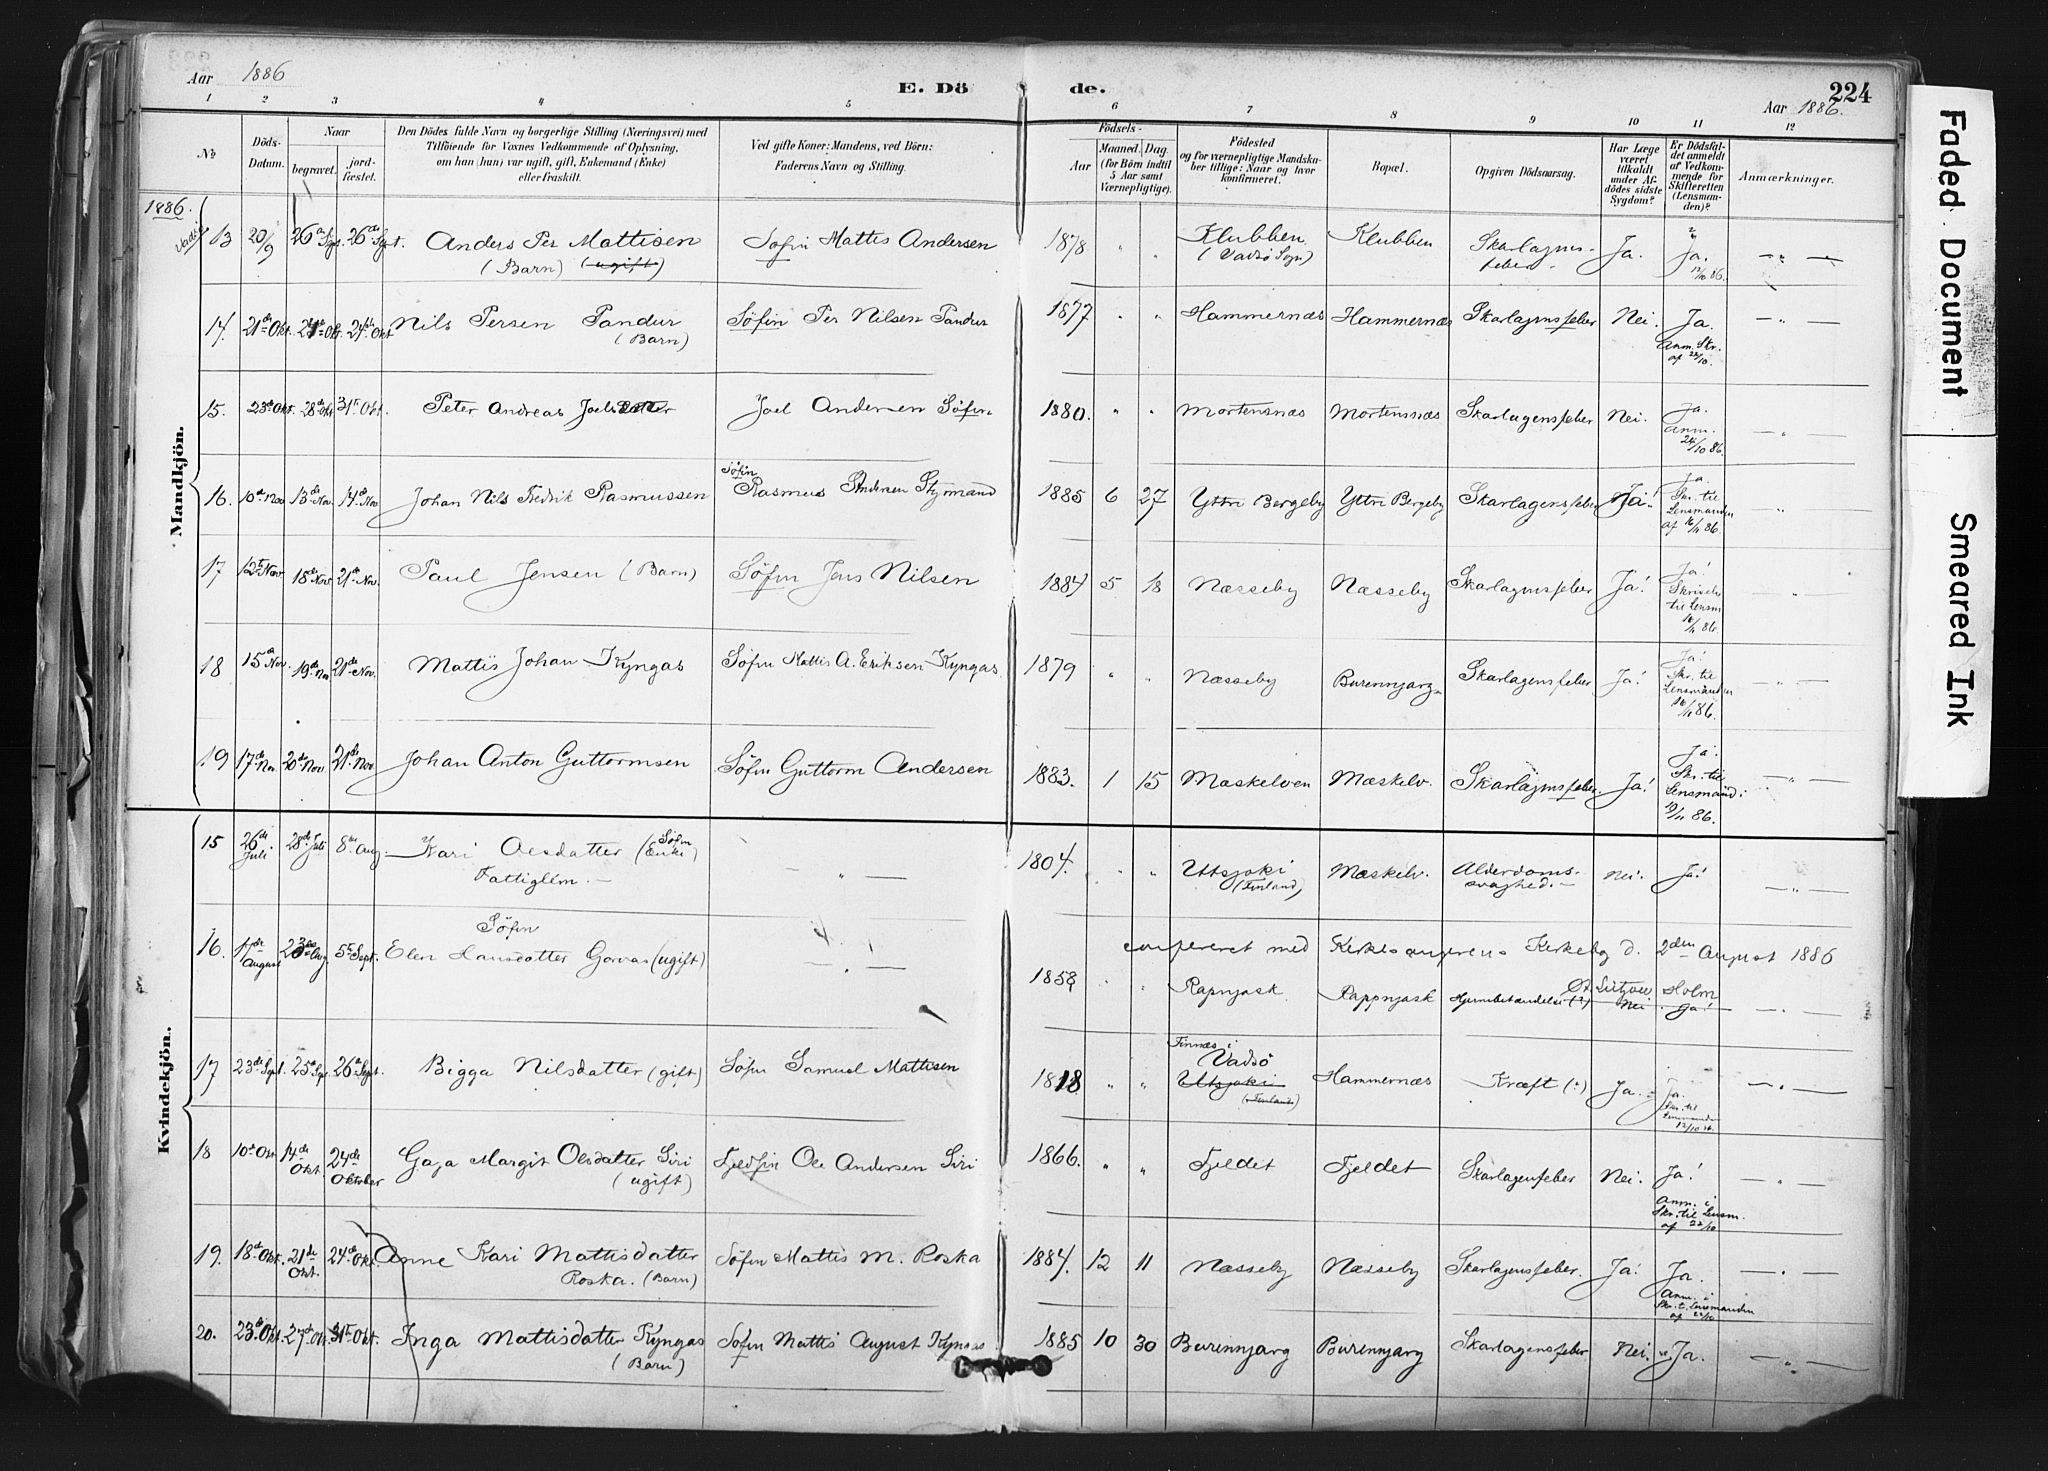 Aar 1886
E. Dö
de.
224
Aar 1886.
1 2 3 4 5 6 7 8 9 10 11 12
No
Döds-Datum.
Naar
begravet.
jord-fæstet.
Den Dödes fulde Navn og borgerlige Stilling (Næringsvei) med
Tilföiende for Voxnes Vedkommende af Oplysning,
om han (hun) var ugift, gift, Enkemand (Enke)
eller fraskilt.
Ved gifte Koner: Mandens, ved Börn:
Faderens Navn og Stilling.
Födsels-
Aar
Maaned. Dag.
(for Börn indtil
5 Aar samt
Værnepligtige).
Födested
og for værnepligtige Mandska-
ber tillige: Naar og hvor
konfirmeret.
Bopæl.
Opgiven Dödsaarsag.
Har Læge
været
tilkaldt
under Af-
dödes sidste
Sygdom?
Er Dödsfal-
det anmeldt
af Vedkom-
mende for
Skifteretten
(Lensman-
den)?
Anmærkninger.
1886.
Mandkjön.
Vadsö
13 20/9 26de Sept. 26de Sept. Anders Per Mattisen Søfin Mattis Andersen 1878 " " Klubben Klubben Skarlagens- Ja. Ja. — " —
(Barn) (ugift) (Vadsö Sogn) feber. 12/10 86.
14. 21de Okt. 24de Okt. 24de Okt. Nils Persen Pandur Søfin Per Nilsen Pandur 1877 " " Hammernæs Hammernæs Skarlagensfeber Nei. Ja. — " —
(Barn) Anm. Skr.
af 22/10.
15. 23de Okt. 28de Okt. 31te Okt. Peter Andreas Joelsen Joel Andersen Søfin 1880. " " Mortensnæs Mortensnæs Skarlagensfeber Nei. Ja. — " —
Anm.
24/10 86.
16. 10de Nov 13de Nov. 14de Nov Johan Nils Fredrik Rasmussen Søfin Rasmus Andersen Styrmand 1885 6 27 Yttre Bergeby Yttre Bergeby Skarlagensfeber Ja! Ja. "
Skr. til
Lensmanden
af 16/11 86.
17 12te Nov 18de Nov 21de Nov. Paul Jensen (Barn) Søfin Jens Nilsen 1884 5 18 Næsseby Næsseby Skarlagensfeber Ja! Ja! "
til Lensm
16/11 86.
18 15de Nov. 19de Nov 21de Nov. Mattis Johan Kyngas Søfin Mattis A. Eriksen Kyngas 1879 " " Næsseby Burennjarg Skarlagensfeber Ja! Ja! — " —
Skr. til
Lensmanden
16/11 86.
19 17de Nov. 20de Nov 21de Nov Johan Anton Guttormsen Søfin Guttorm Andersen 1883. 1 15 Mæskelven Mæskelv. Skarlagensfeber. Ja! Ja. — " —
Skr. til
Lensmand:
19/11 86.
Kvindekjön.
15 26de Juli 28de Juli 8de Aug. Kari Olsdatter (Søfin Enke) — " — 1804. " " Utsjoki Mæskelv. Alderdoms- Nei. Ja! — " —
Fattiglem. — (Finland) svaghed. —
16. 17de August 23de Aug. 5te Sept. Søfin
Elen Hansdatter Gorvas (ugift) — " —
confereret med Kirkesangerens Kirkebog d. 2den August 1886
Lützow Holm
1858 " " Rapnjask Rappnjask Nei. Ja! — " —
17 23de Sept. 25de Sept. 26de Sept. Bigga Nilsdatter (gift) Søfin Samuel Mattisen 1818. " " Finnæs i Vadsö Hammernæs Kræft (?) Ja. Ja. — " —
Utsjoki
(Finland)
Skr. til
Lensmanden
12/10 86.
18 10de Okt 14de Okt. 24de Oktober Gaja Margit Olsdatter Siri Fjeldfin Ole Andersen Siri 1866. " " Fjeldet Fjeldet Skarlagenfeber Nei. Ja! — " —
(ugift) Anm. i
Skr. til Lensm.
af 22/10
19. 18de Okt. 21de Okt. 24de Okt. Anne Kari Mattisdatter Søfin Mattis M. Roska 1884. 12 11 Næsseby Næsseby Skarlagensfeber. Ja! Ja. — " —
Roska. (Barn) Anm. i
Skr. t. Lensmanden
af 22/10
20. 23de Okt. 27de Okt. 31te Okt. Inga Mattisdatter Kyngas Søfin Mattis August Kyngas 1885 10 30 Burennjarg Burennjarg Skarlagensfeber Nei. Ja. — " —
(Barn)
Faded Document
Smeared Ink